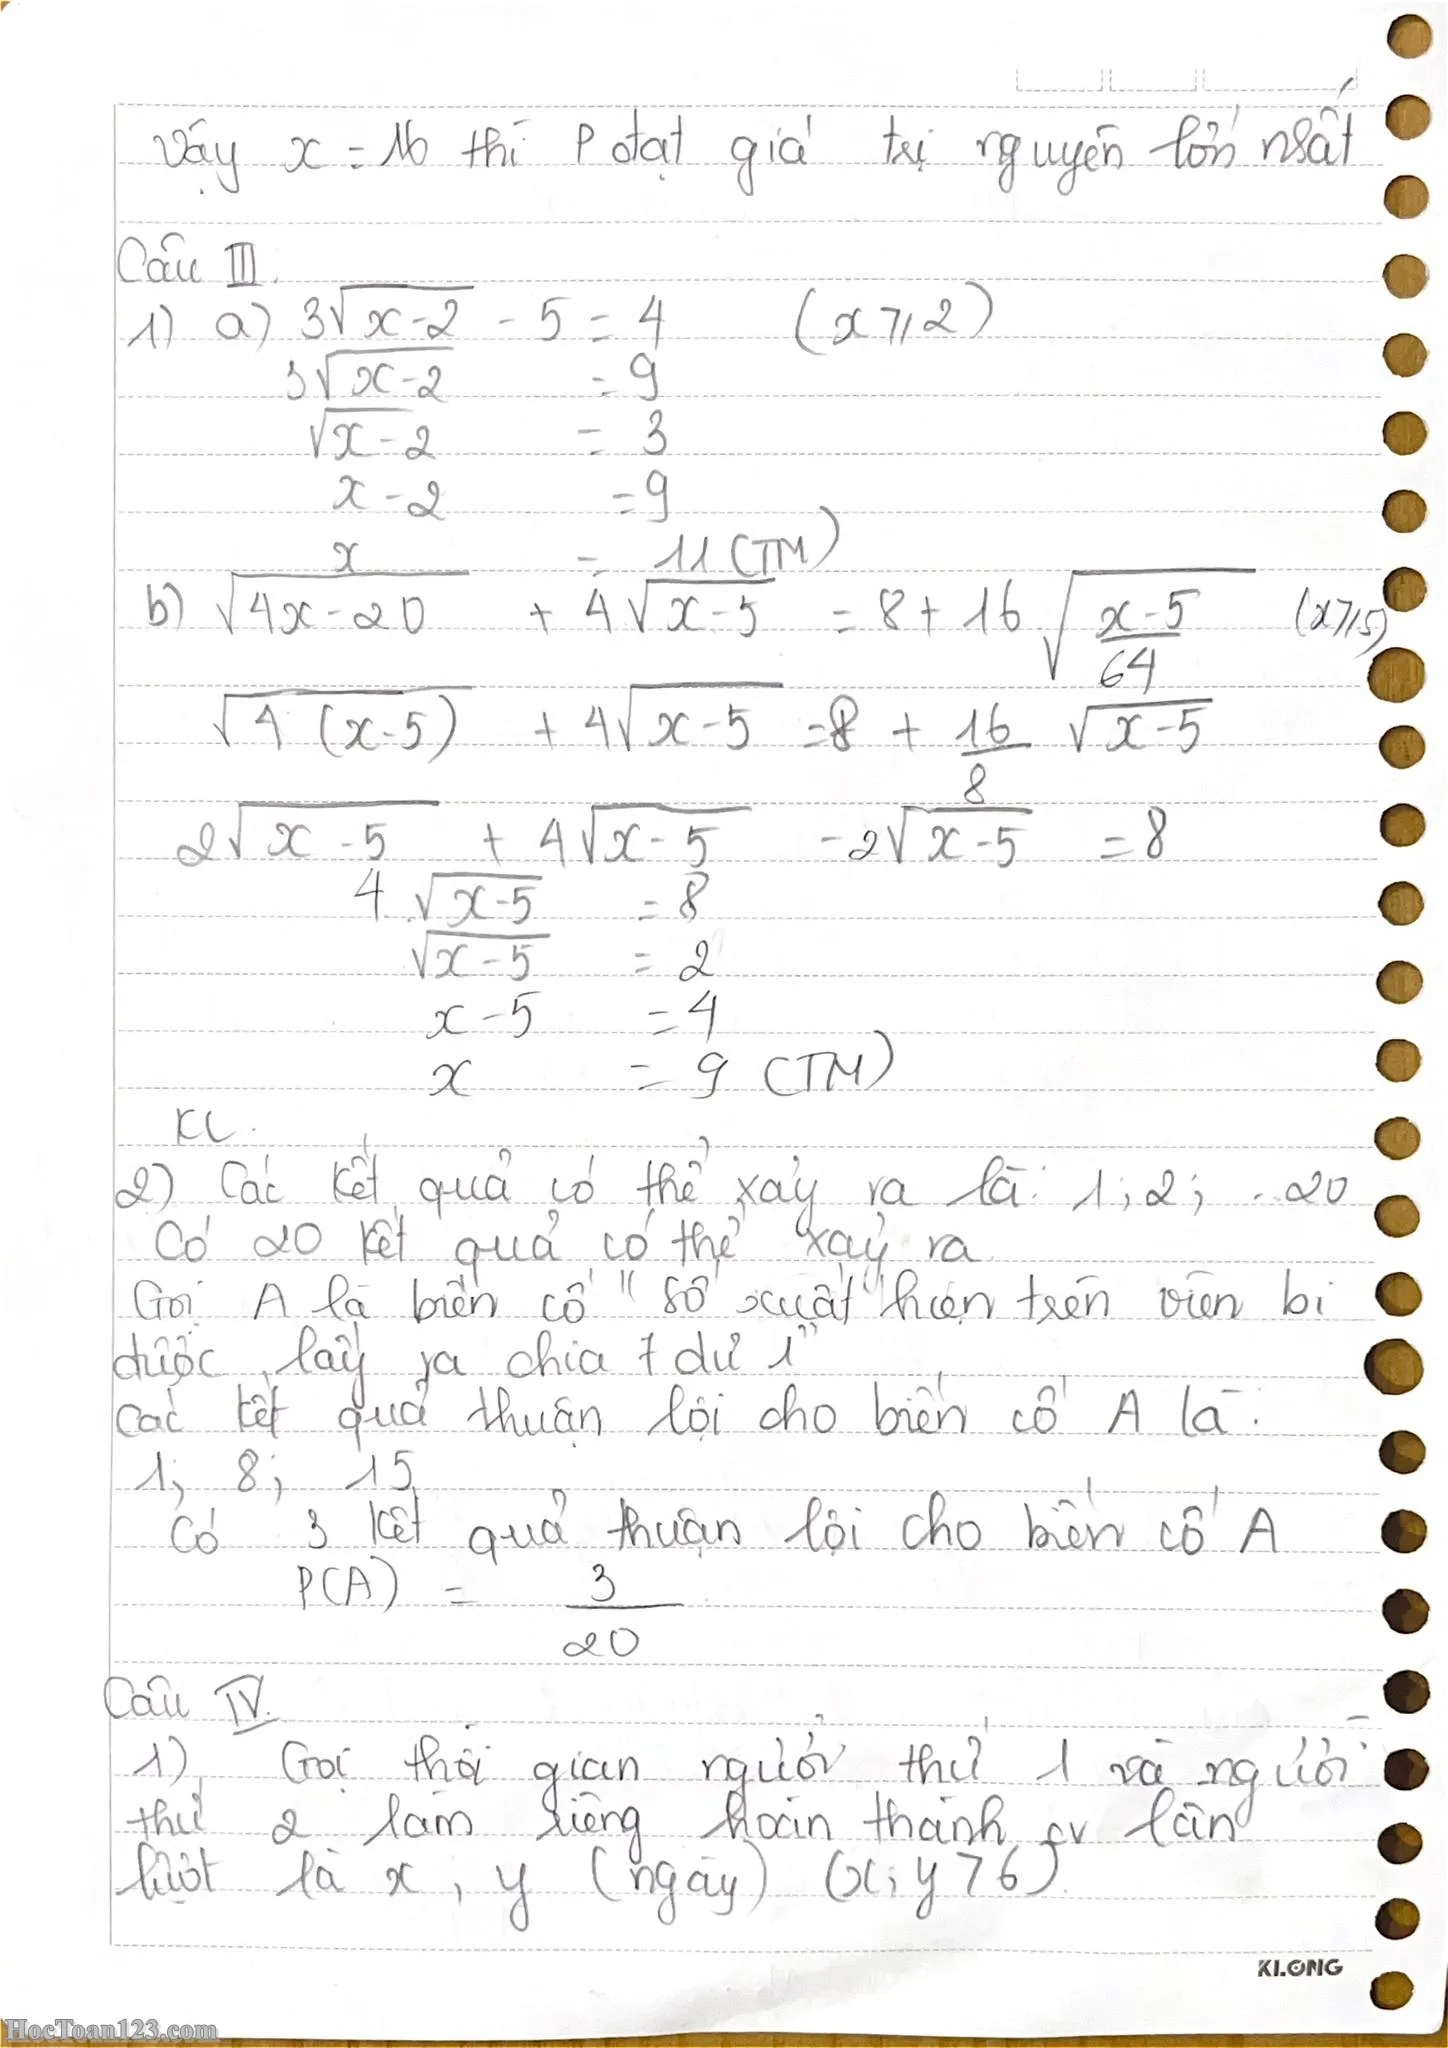 Vậy x = 16 thì P đạt giá trị nguyên lớn nhất
Câu III.
1) a) 3√(x-2) - 5 = 4 (x ≥ 2)
3√(x-2) = 9
√(x-2) = 3
x - 2 = 9
x = 11 (TM)
b) √(4x-20) + 4√(x-5) = 8 + 16√((x-5)/64) (x ≥ 5)
√(4(x-5)) + 4√(x-5) = 8 + 16/8 √(x-5)
2√(x-5) + 4√(x-5) - 2√(x-5) = 8
4√(x-5) = 8
√(x-5) = 2
x - 5 = 4
x = 9 (TM)
KL.
2) Các kết quả có thể xảy ra là: 1; 2; ..20
Có 20 kết quả có thể xảy ra
Gọi A là biến cố "Số xuất hiện trên viên bi
được lấy ra chia 7 dư 1"
Các kết quả thuận lợi cho biến cố A là:
1; 8; 15
Có 3 kết quả thuận lợi cho biến cố A
P(A) = 3/20
Câu IV.
1) Gọi thời gian người thứ 1 và người
thứ 2 làm riêng hoàn thành cv lần
lượt là x, y (ngày) (x; y > 6)
KLONG
HocToan123.com